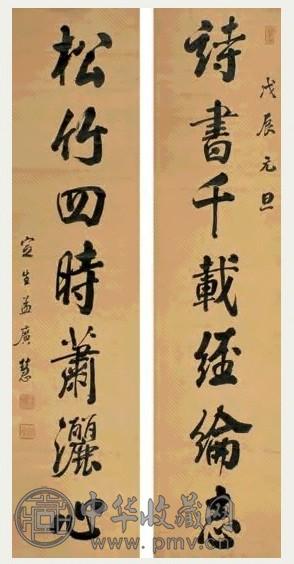 戊辰元旦
詩書千載經綸
松竹四時蕭灑
定生孟廣慧
中华收藏网
www.pmv.cn